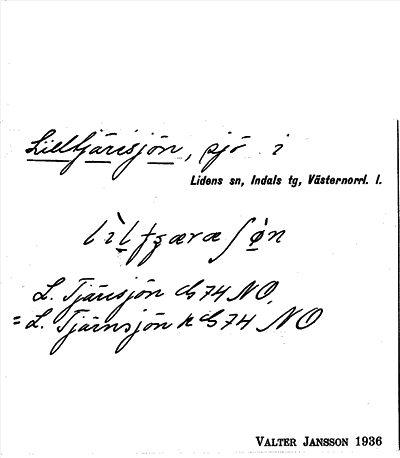 Lilltjärisjön, sjö i
Lidens sn, Indals tg, Västernorrl. l.
L. Tjärisjön cb 74 NO,
= L. Tjärnsjön k cb 74 NO
VALTER JANSSON 1936